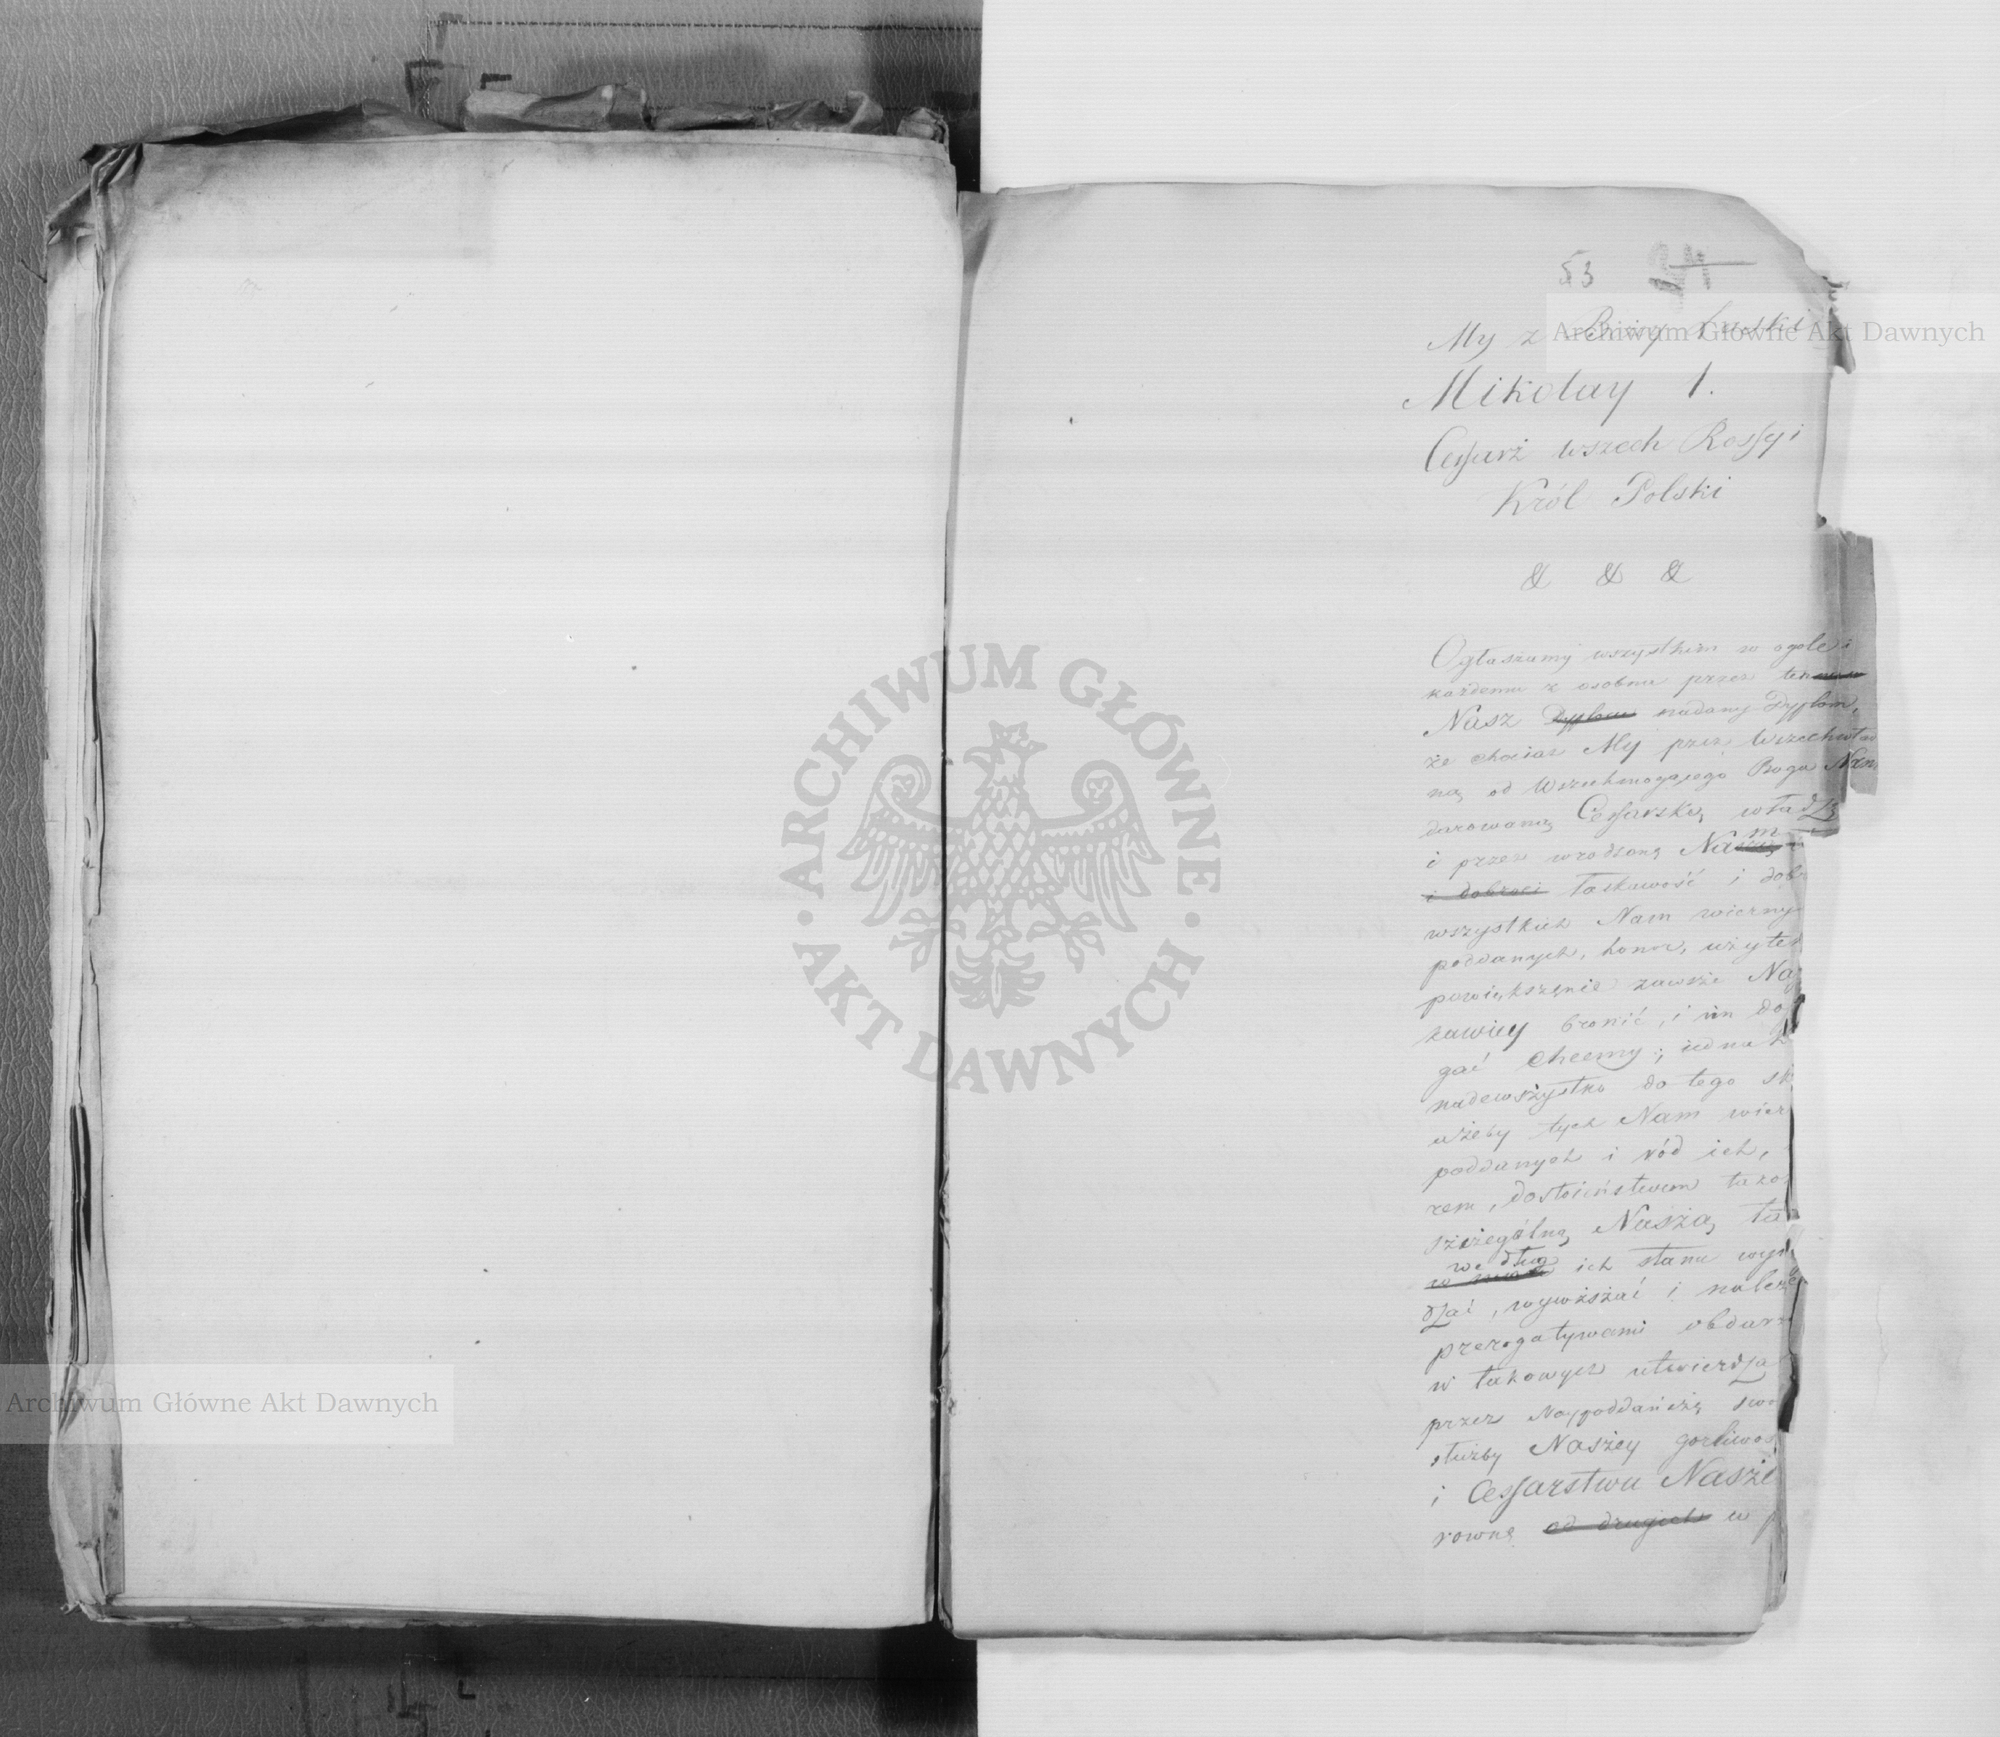 53
My z Bożey Łaski
Mikołay 1.
Cessarz wszech Rossyi
Król Polski
& & &
Ogłaszamy wszystkim w ogole i
każdemu z osobna przez ten
Nasz nadany Dyplom,
że chociaż My przez Wszechwład
ną od Wszechmogącego Boga Nam
darowaną Cessarską władzę
i przez wrodzoną Nam
i dobroci łaskawość i dob
wszystkich Nam wierny
poddanych, honor, użyte
powiększenie zawsze Na
kawiey bronić, i im do
gać chcemy; iednak
nadewszystko do tego sk
ażeby tych Nam wier
poddanych i ród ich,
rem, dostoieństwem
szczególną Naszą ła
według
ich stanu wyn
dzać, wywższać i należ
prerogatywami obdarz
w takowych utwierdza
przez Naypoddańszą swo
służby Naszey gorliwoś
i Cessarstwu Nasze
rowne od drugich w p
Archiwum Główne Akt Dawnych
ARCHIWUM GŁÓWNE AKT DAWNYCH
Archiwum Główne Akt Dawnych